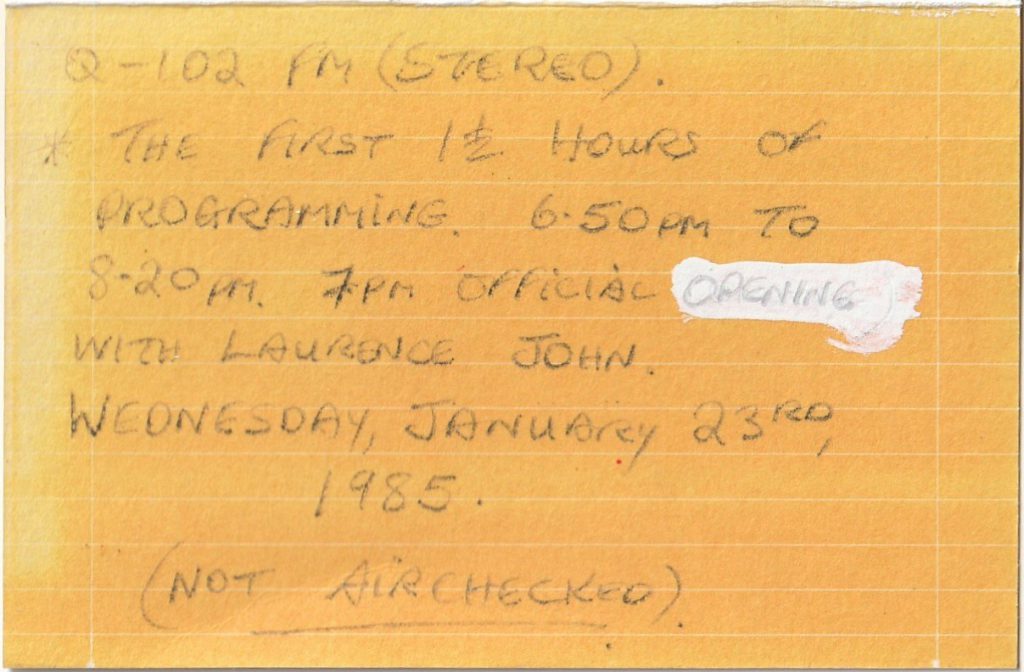 Q-102 FM (STEREO).
* THE FIRST 1½ HOURS OF
PROGRAMMING. 6.50PM TO
8-20PM. 7PM OFFICIAL OPENING
WITH LAURENCE JOHN.
WEDNESDAY, JANUARY 23RD,
1985.
(NOT AIRCHECKED).